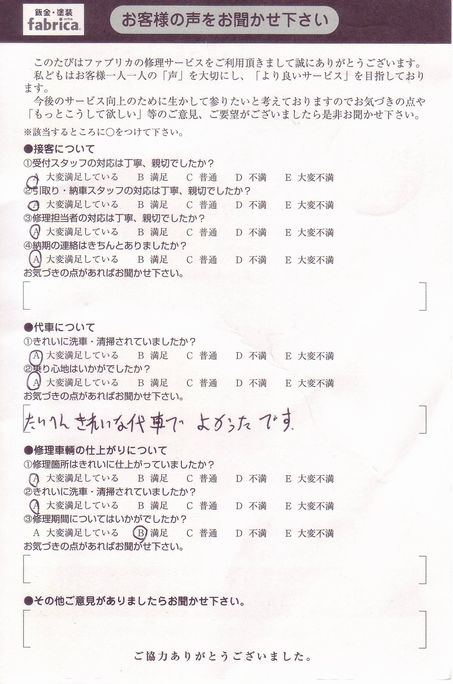 鈑金・塗装
fabrica.
お客様の声をお聞かせ下さい
このたびはファブリカの修理サービスをご利用頂きまして誠にありがとうございます。
私どもはお客様一人一人の「声」を大切にし、「より良いサービス」を目指しており
ます。
今後のサービス向上のために生かして参りたいと考えておりますのでお気づきの点や
「もっとこうして欲しい」等のご意見、ご要望がございましたら是非お聞かせ下さい。
※該当するところに○をつけて下さい。
●接客について
①受付スタッフの対応は丁寧、親切でしたか？
A 大変満足している B 満足 C 普通 D 不満 E 大変不満
②引取り・納車スタッフの対応は丁寧、親切でしたか？
A 大変満足している B 満足 C 普通 D 不満 E 大変不満
③修理担当者の対応は丁寧、親切でしたか？
A 大変満足している B 満足 C 普通 D 不満 E 大変不満
④納期の連絡はきちんとありましたか？
A 大変満足している B 満足 C 普通 D 不満 E 大変不満
お気づきの点があればお聞かせ下さい。
●代車について
①きれいに洗車・清掃されていましたか？
A 大変満足している B 満足 C 普通 D 不満 E 大変不満
②乗り心地はいかがでしたか？
A 大変満足している B 満足 C 普通 D 不満 E 大変不満
お気づきの点があればお聞かせ下さい。
たいへん きれいな代車で よかったです.
●修理車輌の仕上がりについて
①修理箇所はきれいに仕上がっていましたか？
A 大変満足している B 満足 C 普通 D 不満 E 大変不満
②きれいに洗車・清掃されていましたか？
A 大変満足している B 満足 C 普通 D 不満 E 大変不満
③修理期間についてはいかがでしたか？
A 大変満足している B 満足 C 普通 D 不満 E 大変不満
お気づきの点があればお聞かせ下さい。
●その他ご意見がありましたらお聞かせ下さい。
ご協力ありがとうございました。